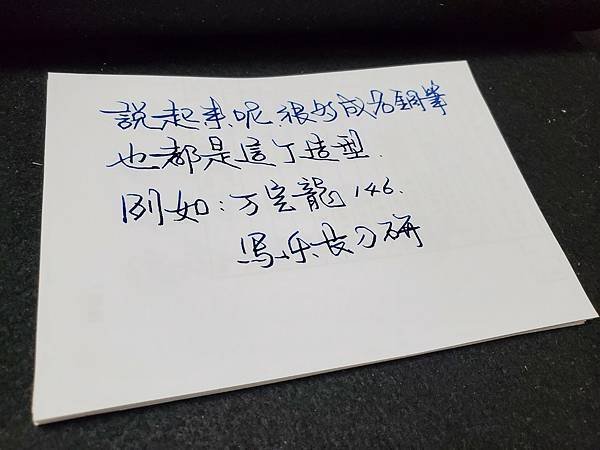 説起來呢很多成名鋼筆
也都是這丁造型.
例如:万宝龍146.
寫乐长刀研